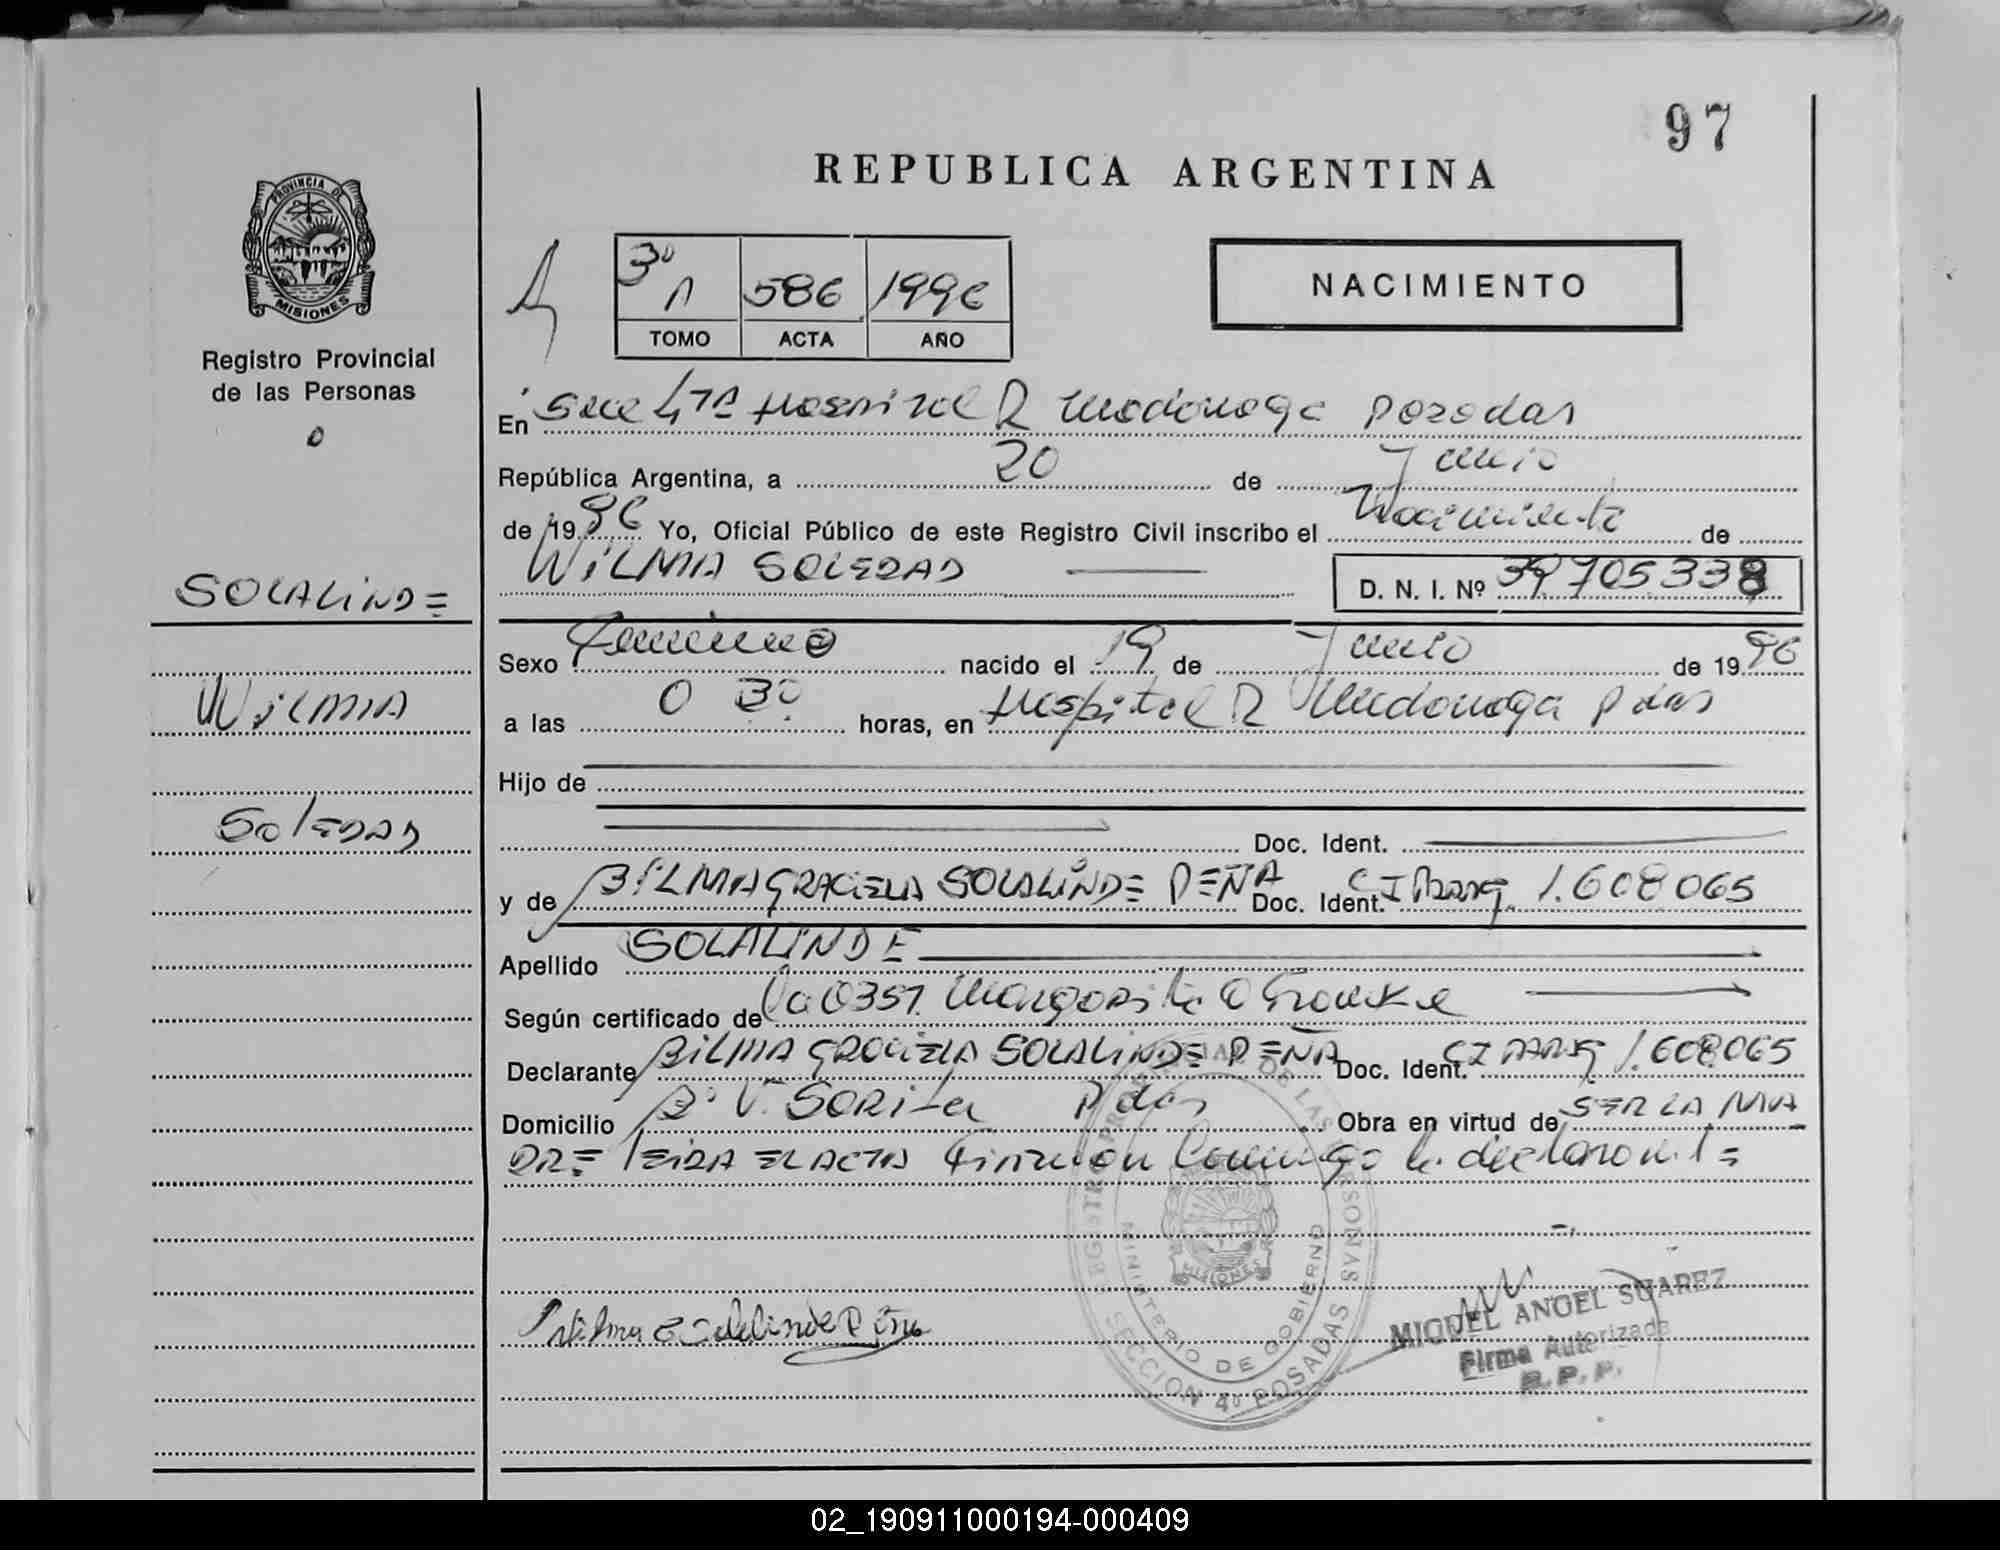 97
REPUBLICA ARGENTINA
PROVINCIA DE
MISIONES
Registro Provincial
de las Personas
3º A 586 1996
TOMO ACTA AÑO
NACIMIENTO
En Secc 4ta Hospital R Madariaga Posadas
República Argentina, a 20 de Junio
de 1996 Yo, Oficial Público de este Registro Civil inscribo el Nacimiento de
WILMA SOLEDAD D. N. I. Nº 39705338
SOLALINDE
WILMA
SOLEDAD
Sexo Femenino nacido el 19 de Junio de 1996
a las 0 30 horas, en Hospital R Madariaga Pdas
Hijo de
Doc. Ident.
y de BILMA GRACIELA SOLALINDE PEÑA Doc. Ident. CI Parag. 1.608065
Apellido SOLALINDE
Según certificado de Margarita
Declarante BILMA GRACIELA SOLALINDE PEÑA Doc. Ident. CI PARAG 1.608065
Domicilio Bº Pdas Obra en virtud de SER LA MA
DRE leida EL ACTA Firman Conmigo la declarante
REGISTRO PROVINCIAL DE LAS PERSONAS
MINISTERIO DE GOBIERNO
MISIONES
SECCION 4º POSADAS
MIGUEL ANGEL SUAREZ
Firma Autorizada
R. P. P.
02_190911000194-000409